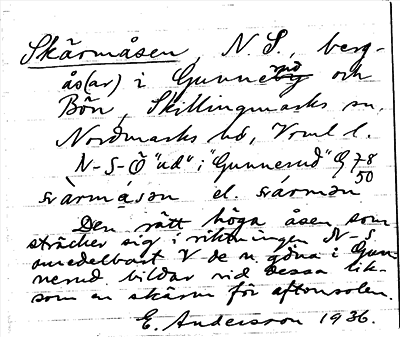 Skärmåsen, N. S., berg-
ås(ar) i Gunneby rud och
Bön, Skillingmarks sn,
Nordmarks hd, Vrml l.
N-S-Ö "ud" i "Gunnerud" G 78/50
svàrmąsən el. svármən
Den rätt höga åsen som
sträcker sig i riktningen N-S
omedelbart V de n. gårna i Gun-
nerud bildar vid dessa lik-
som en skärm för aftonsolen.
E. Andersson 1936.